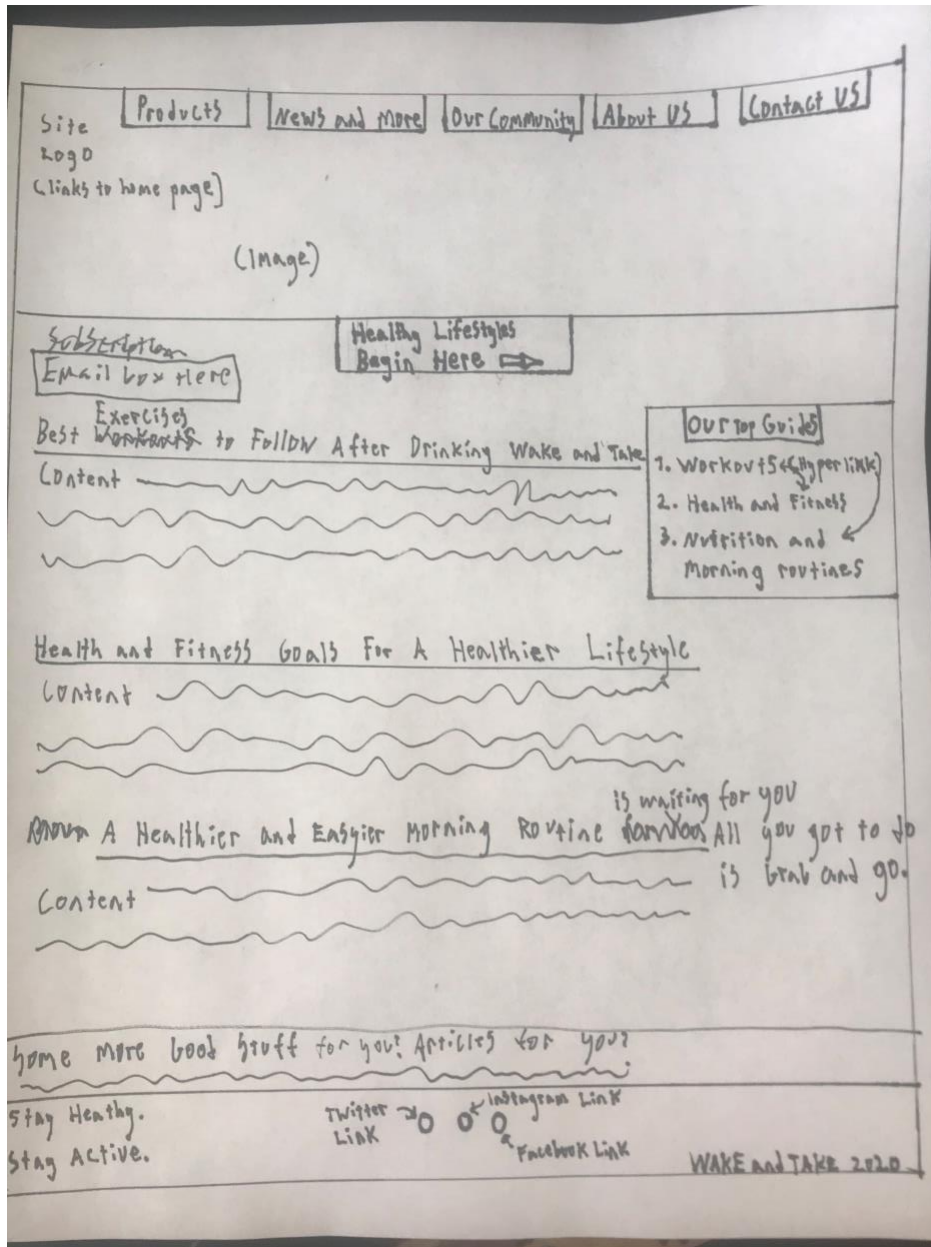 Products
News and More
Our Community
About US
Contact US
Site
Logo
(links to home page)
(Image)
Subscription
Healthy Lifestyles
Begin Here
Email box Here
Exercises
Best Workouts to Follow After Drinking Wake and Take
Content
Our Top Guides
1. Workouts (Hyperlink)
2. Health and Fitness
3. Nutrition and
Morning routines
Health and Fitness Goals For A Healthier Lifestyle
Content
is waiting for you
A Healthier and Easyier Morning Routine All you got to do
is Grab and go.
Content
Some More Good Stuff for you? Articles for you?
Stay Heathy.
Stay Active.
Twitter
Link
Instagram Link
Facebook Link
WAKE and TAKE 2020